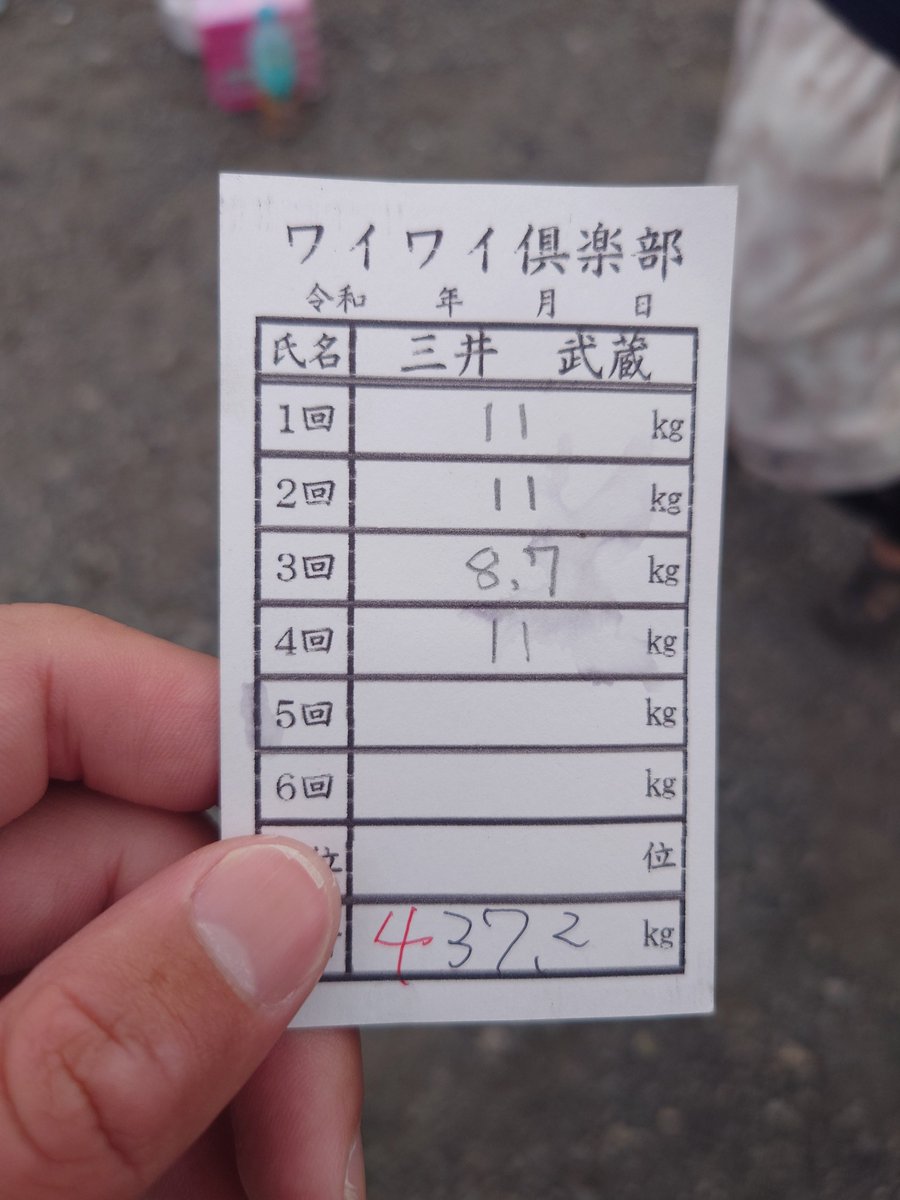 ワイワイ倶楽部
令和 年 月 日
氏名 三井 武蔵
1回 11 kg
2回 11 kg
3回 8.7 kg
4回 11 kg
5回 kg
6回 kg
位 位
4 37.2 kg